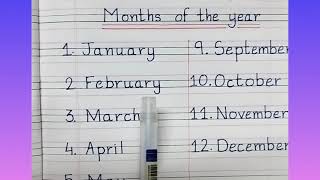 Months of the year
1. January
2. February
3. March
4. April
5. May
9. September
10. October
11. November
12. December